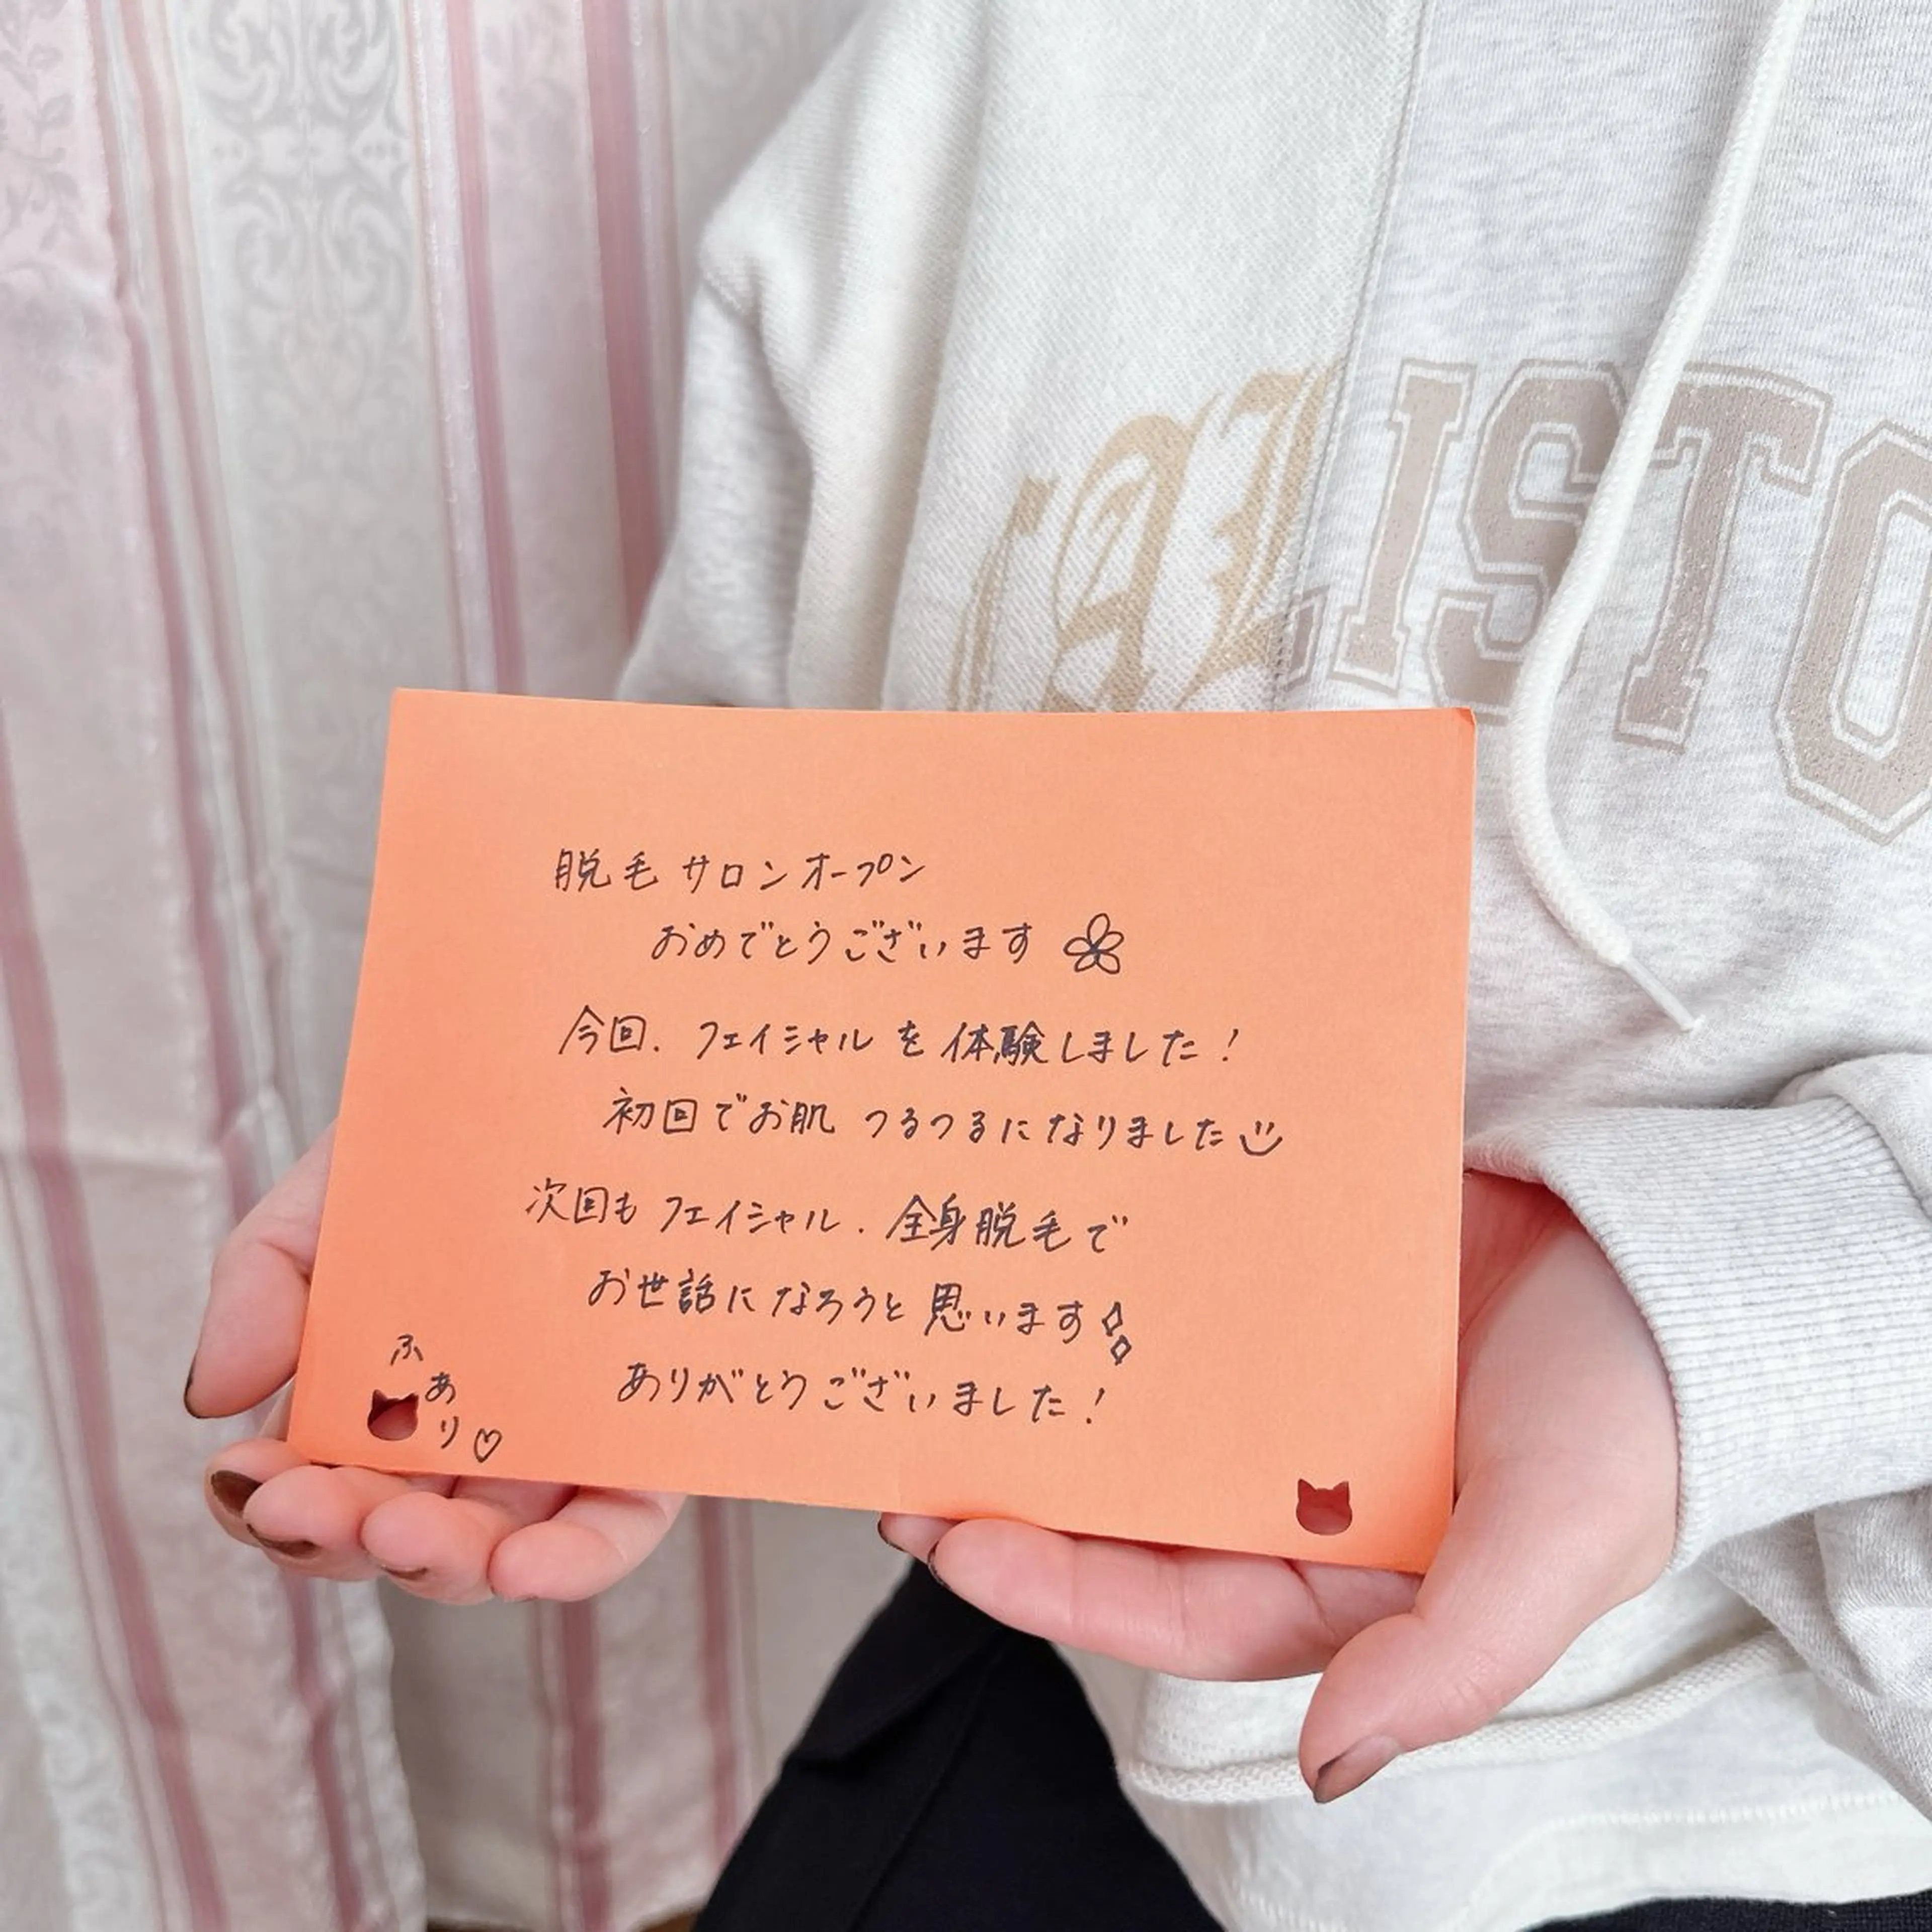 ISTO
脱毛サロンオープン
おめでとうございます
今回、フェイシャルを体験しました！
初回でお肌つるつるになりました
次回もフェイシャル、全身脱毛で
お世話になろうと思います
ありがとうございました！
ふあり♡